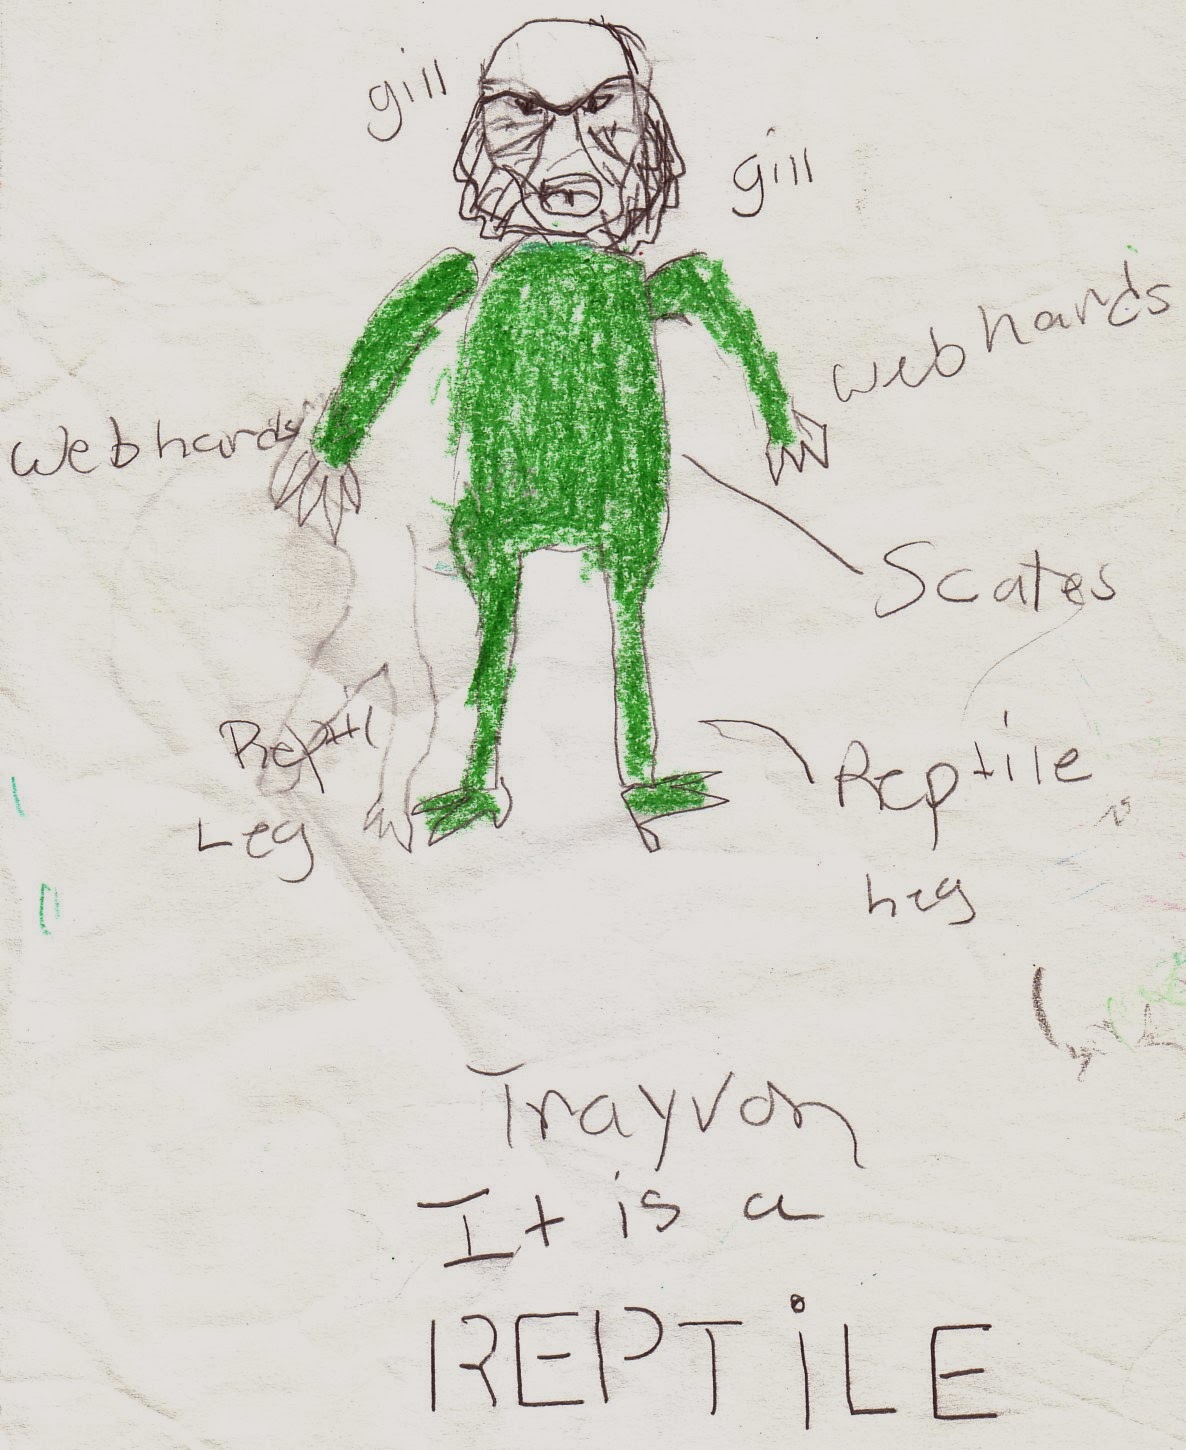 gill
gill
web hands
web hands
Scates
Reptil
Leg
Reptile
heg
Trayvon
It is a
REPTiLE